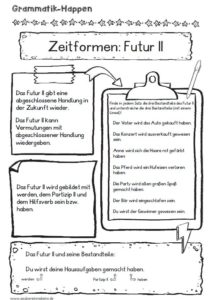 Grammatik-Happen
Zeitformen: Futur II
Das Futur II gibt eine
abgeschlossene Handlung in
der Zukunft wieder.
Das Futur II kann
Vermutungen mit
abgeschlossener Handlung
wiedergeben.
Das Futur II wird gebildet mit
werden, dem Partizip II und
dem Hilfsverb sein bzw.
haben.
Finde in jedem Satz die drei Bestandteile des Futur II
und unterstreiche die drei Bestandteile (mit einem
Der Vater wird das Auto gekauft haben.
Das Konzert wird ausverkauft gewesen
sein.
Anna wird sich die Haare rot gefärbt
haben.
Das Pferd wird ein Hufeisen verloren
haben.
Die Party wird allen großen Spaß
gemacht haben.
Der Bär wird eingeschlafen sein.
Du wirst der Gewinner gewesen sein.
Das Futur II und seine Bestandteile:
Du wirst deine Hausaufgaben gemacht haben.
werden
Partizip II
haben